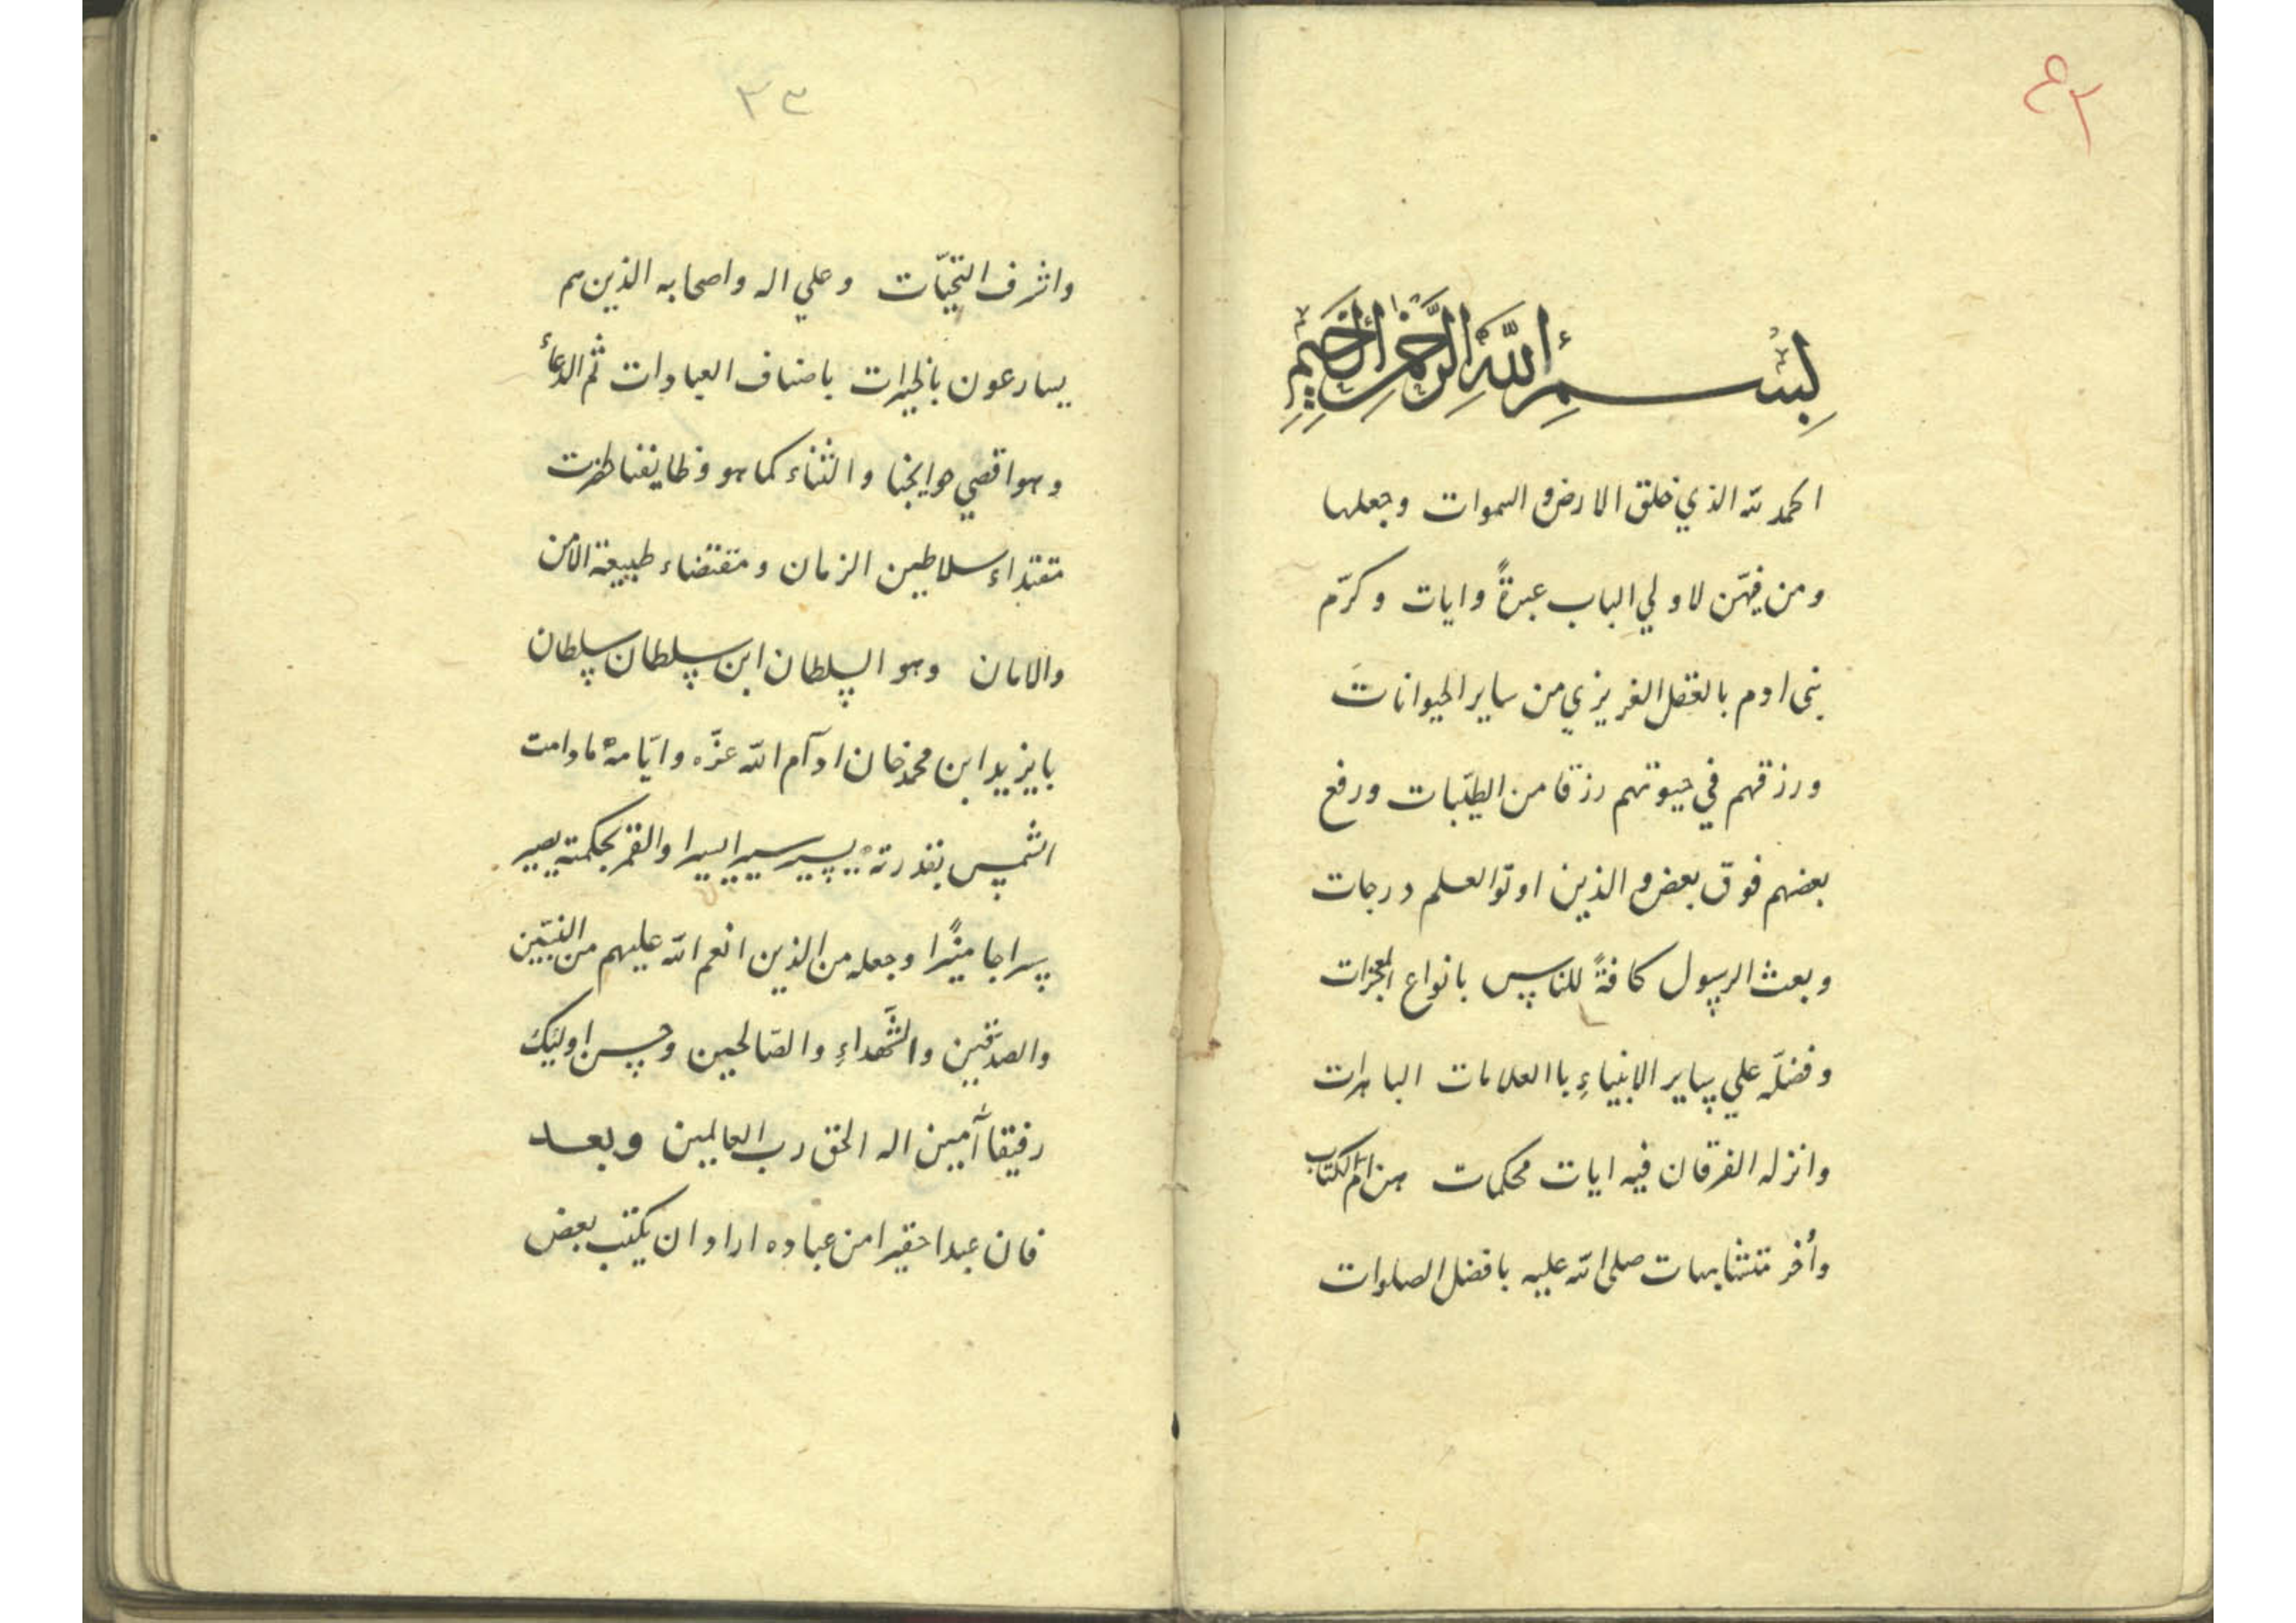 ٤٢
بِسْمِ اللَّهِ الرَّحْمٰنِ الرَّحِيمِ
الحمد لله الذي خلق الارض و السموات وجعلها
ومن فيهّن لاولي الباب عبرةً وايات وكرّم
بنى ادم بالعقل الغريزي من ساير الحيوانات
ورزقهم في حيوتهم رزقا من الطيّبات ورفع
بعضهم فوق بعض و الذين اوتوا العلم درجات
وبعث الرسول كافةً للناس بانواع المعجزات
وفضلّه علي ساير الانبياءِ باالعلامات الباهرات
وانزله الفرقان فيه ايات محكمات هن امّ الكتاب
وأخر متشابهات صلى الله عليه بافضل الصلوات
٣٣
واشرف التحيّات وعلي اله واصحابه الذين هم
يسارعون بالخيرات باصناف العبادات ثم الدعاء
وهو اقصي حوايجنا والثناء كما هو وظايفنا
مقتداء سلاطين الزمان ومقتضاء طبيعة الامن
والامان وهو السلطان ابن سلطان سلطان
بايزيد ابن محمد خان ادآم الله عزّه وايّامه مادامت
الشمس بقدرته يسير سيرا يسيرا والقمر بحكمته يصير
سراجا منيًرا وجعله من الذين انعم الله عليهم من النبيّين
والصدّقين والشَّهداءِ والصّالحين وحسن اوليك
رفيقا آمين اله الحق رب العالمين وبعد
فان عبدا حقيرا من عباده اراد ان يكتب بعض